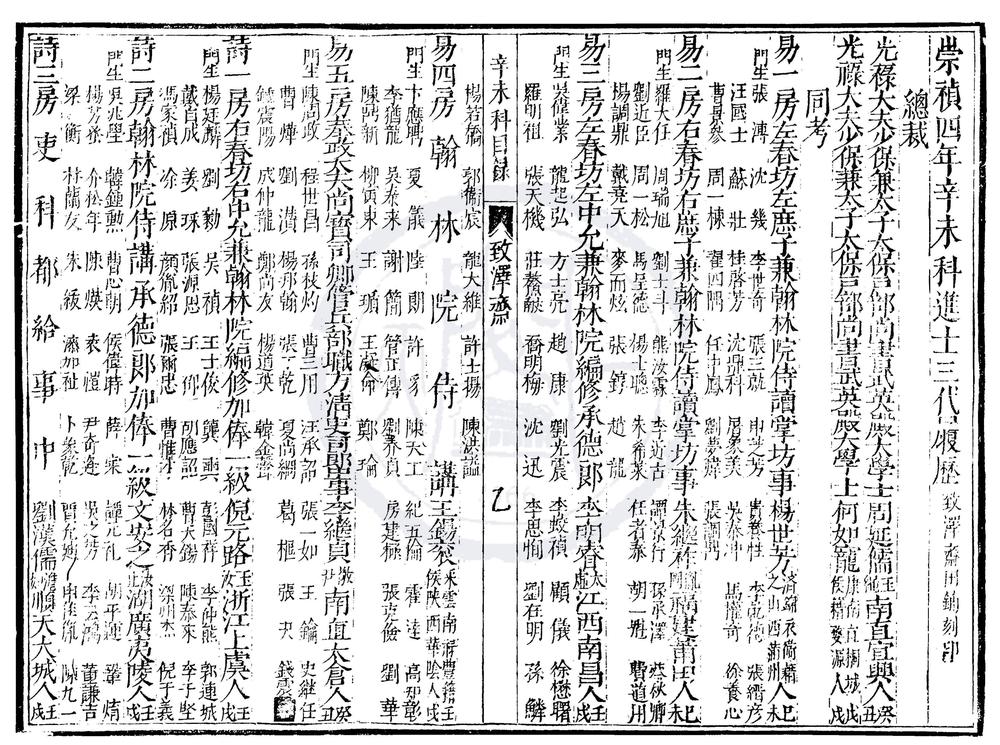 崇禎四年辛未科進士三代履歷 致澤齋周刻印
總裁
光祿大夫少保兼太子太保戶部尚書武英殿大學士周延儒玉繩南直宜興人癸丑
光祿大夫少保兼太子太保戶部尚書武英殿大學士何如寵康侯南直桐城籍婺源人戊戌
同考
易一房左春坊左庶子兼翰林院侍讀掌坊事楊世芳山西蒲州人己未
門生 張溥 沈幾 李世奇 張三就 申芝芳 曹養性
汪國士 蘇壯 桂啓芳 沈鼎科 屠象美 馬權奇 徐養心
曹景參 周一棟 任中鳳 劉夢煒
易二房右春坊右庶子兼翰林院侍讀掌坊事朱繼祚福建莆田人己未
門生 羅大任 周瑞旭 劉士斗 熊汝霖 李近古 譚貞行 孫承澤 蔡秋卿
劉近臣 周一松 馬呈德 楊士聰 朱希萊 任者泰 胡一魁 費道用
楊調鼎 戴亮天 麥而炫 張錞 趙龍
易三房左春坊左中允兼翰林院編修承德郎李明睿太虛江西南昌人壬戌
門生 吳偉業 龍起弘 方士亮 趙康 劉光震 李蛟禎 顧儀 徐懋曙
羅明祖 張天機 莊鰲獻 喬明梅 沈迅 李思恂 劉在明 孫鱗
辛未科目錄 致澤齋 乙
楊若橋 郭備宸 龍大維 許士揚 陳洪謐
易四房翰林院侍講王錫袞雲南祿豐籍陝西華陰人壬戌
門生 卞應聘 夏儀 陸朗 許豸 陳大工 紀五倫 霍達 高知彰
李猶龍 吳泰來 謝簡 管正傳 劉養貞 房建極 張克儉 劉華
陳兆新 柳寅東 王 鄭瑜
易五房奉政大夫尚寶司卿管兵部職方清吏司郎事李繼貞南直太倉人癸丑
門生 陳尚政 程世昌 孫枝灼 曹三用 汪承詔 張一如 王鑰 史纘任
曹燁 劉漬 楊邦翰 張乾 夏尚絅 葛樞 王
鍾震陽 成仲龍 鄭尚友 楊道英 韓金
詩一房右春坊右中允兼翰林院編修加俸一級倪元璐玉汝浙江上虞人壬戌
門生 楊廷麟 劉勷 吳禎 王士俊 龔奭 彭國祥 李仲熊 郭連城
戴自成 姜琛 張源思 王仰 胡應詔 曹天錫 陳泰來 李于堅
馮家禎 徐原 顏胤紹 張爾忠 曹惟才 林名香 倪于義
詩二房翰林院侍講承德郎加俸一級文安之湖廣夷陵人壬戌
門生 吳兆學 韓鍾勳 曹志朝 侯偉時 薛寀 譚元禮 胡平運 鞏焴
楊芳發 介松年 陳煐 袁愷 尹奇逢 吳之芳 李 董謙吉
梁衡 林蘭友 朱紱 添加祉 卜象乾 陳九一
詩三房吏科都給事中劉漢儒順天大城人壬戌